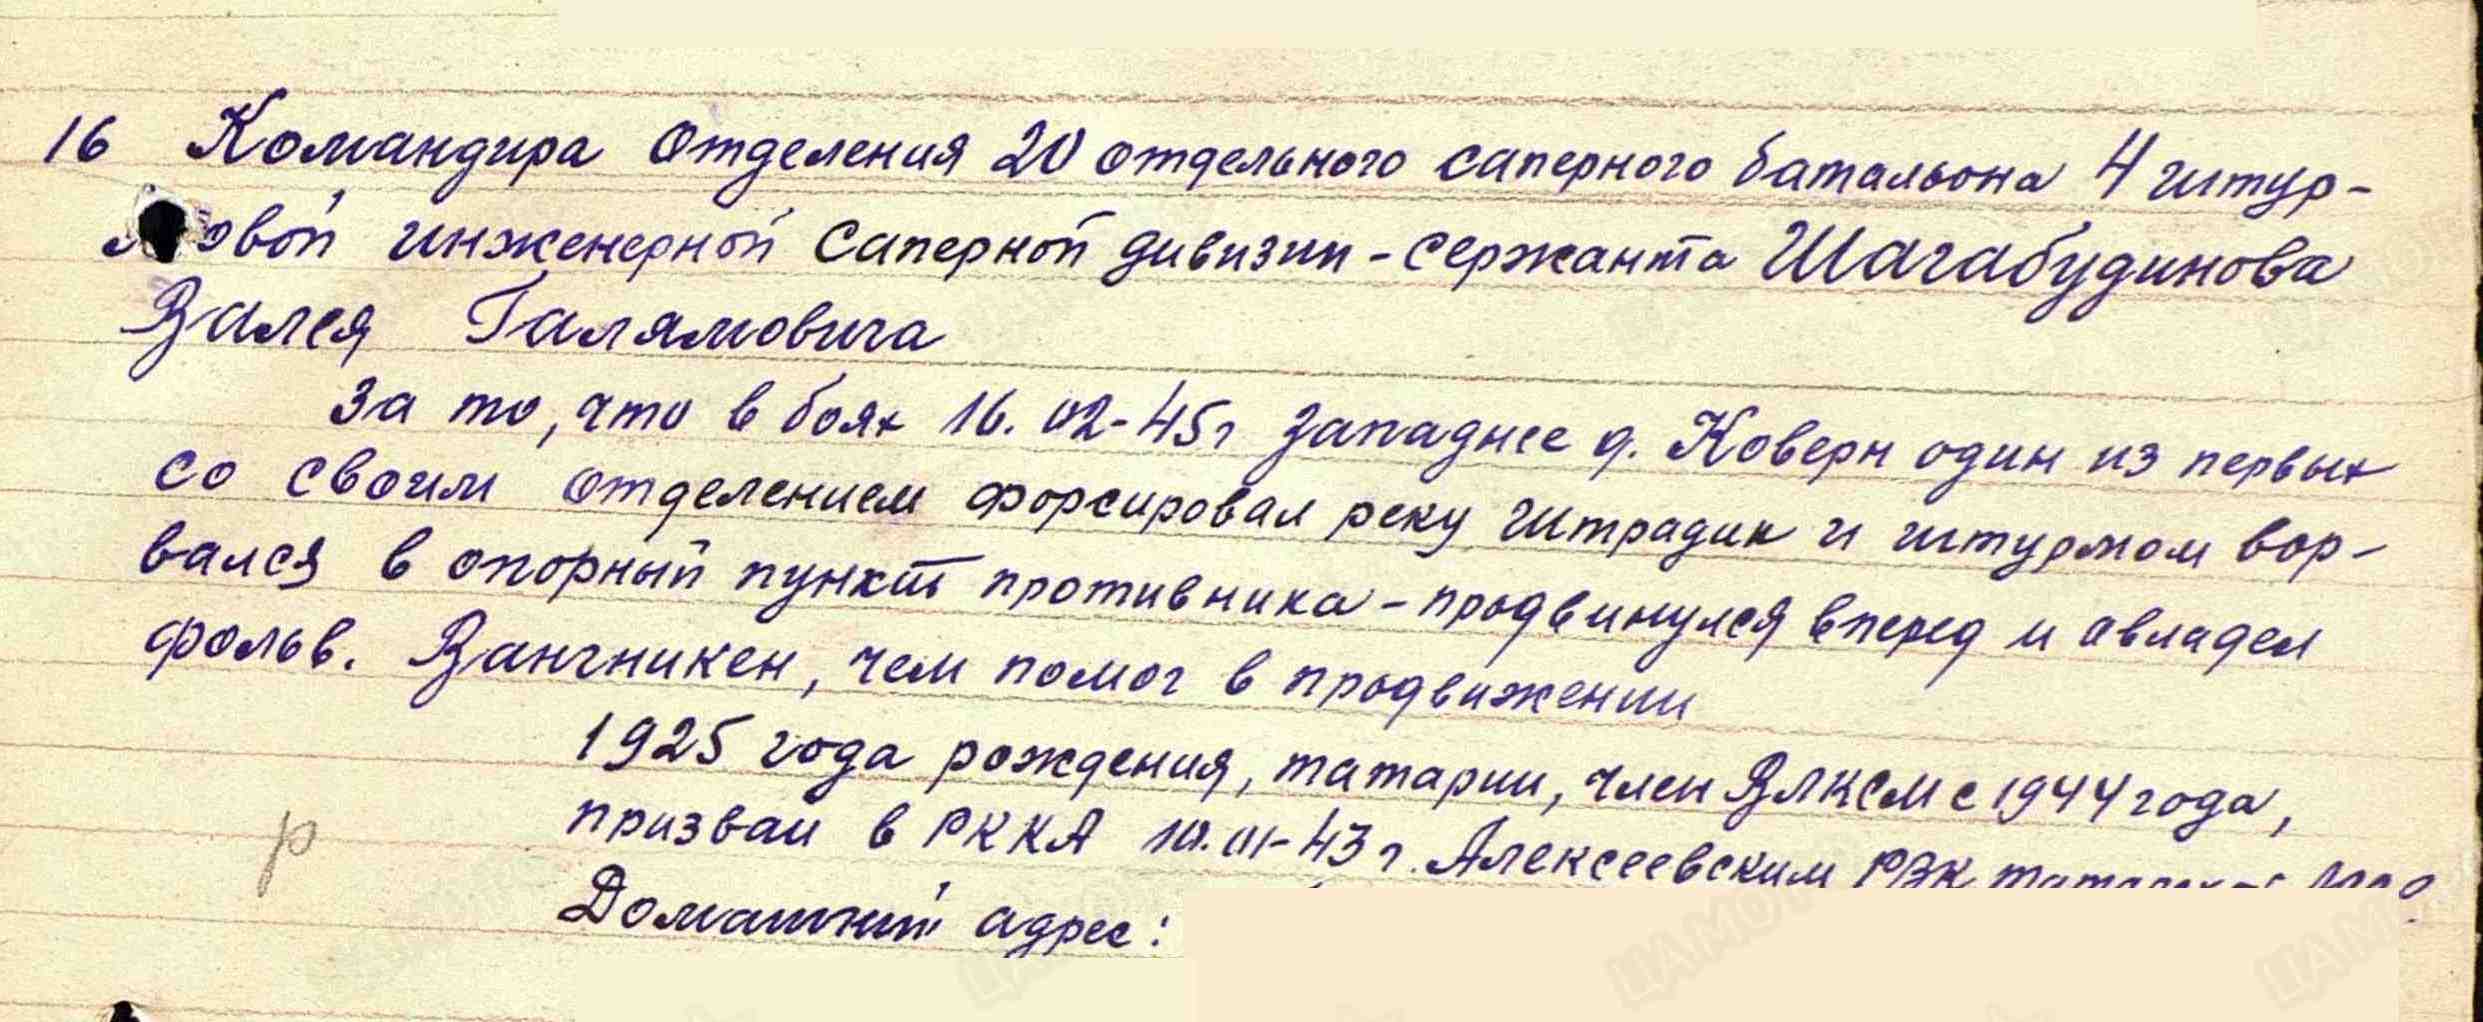 16 Командира Отделения 20 отдельного саперного батальона 4 штур-
мовой инженерной саперной дивизии - сержанта Шагабудинова
Валея Галямовича
За то, что в боях 16.02-45г западнее д. Коверн один из первых
со своим отделением форсировал реку Штрадик и штурмом вор-
вался в опорный пункт противника - продвинулся вперед и овладел
фольв. Вангникен, чем помог в продвижении
1925 года рождения, татарин, член ВЛКСМ с 1944 года,
призван в РККА 10.01-43г. Алексеевским РВК
р
Домашний адрес: